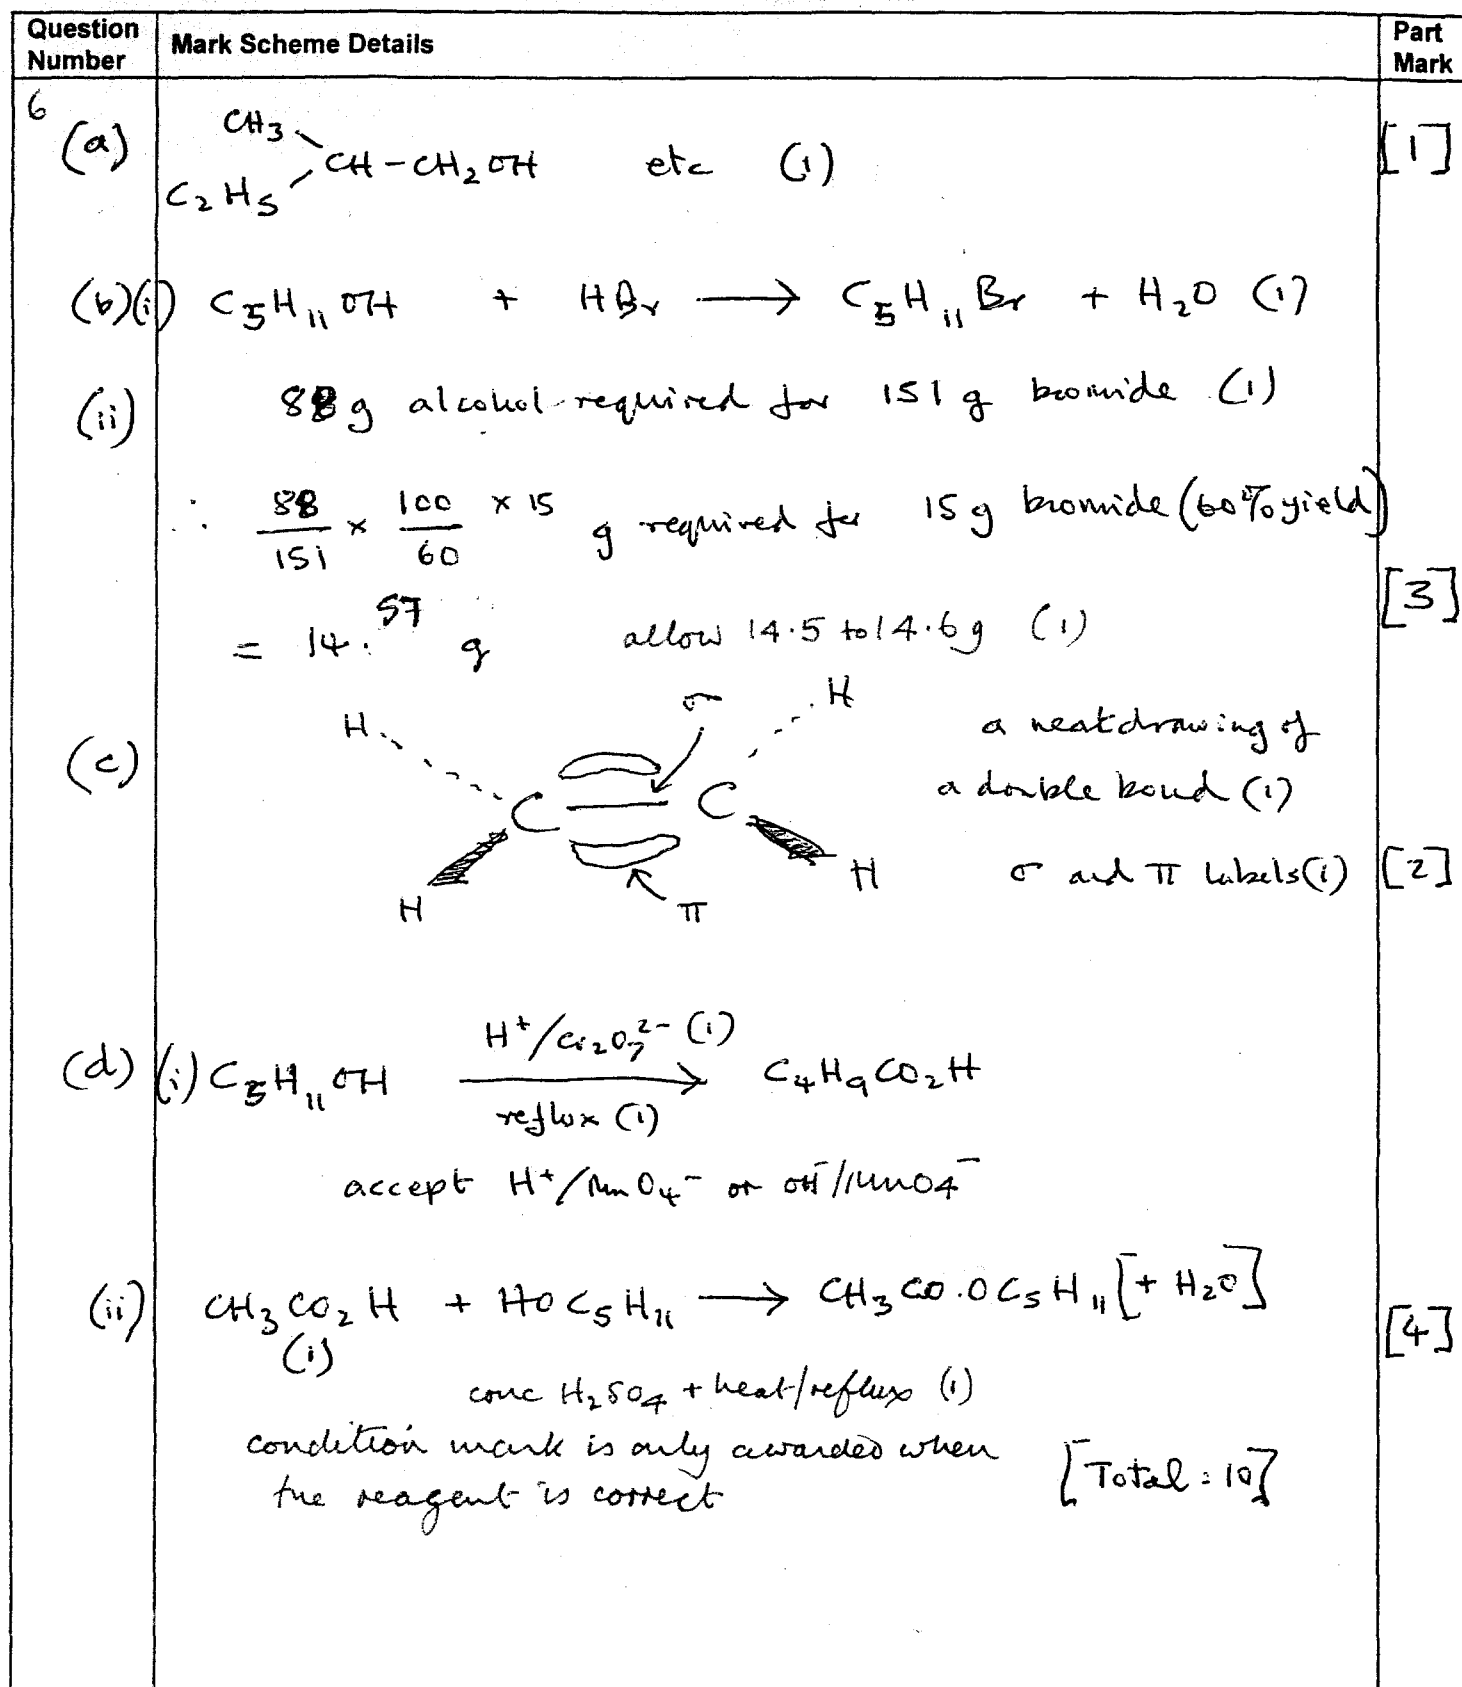 Question Number | Mark Scheme Details | Part Mark
6
(a) CH₃
CH-CH₂OH etc (1) [1]
C₂H₅
(b)(i) C₅H₁₁OH + HBr ⟶ C₅H₁₁Br + H₂O (1)
(ii) 88 g alcohol required for 151 g bromide (1)
∴ 88/151 × 100/60 × 15 g required for 15 g bromide (60% yield)
[3]
= 14.57 g allow 14.5 to 14.6 g (1)
H σ H
(c) a neat drawing of
C C a double bond (1)
H π H σ and π labels (1) [2]
H⁺/Cr₂O₇²⁻ (1)
(d) (i) C₅H₁₁OH ⟶ C₄H₉CO₂H
reflux (1)
accept H⁺/MnO₄⁻ or OH⁻/MnO₄⁻
(ii) CH₃CO₂H + HOC₅H₁₁ ⟶ CH₃CO.OC₅H₁₁ [+ H₂O] [4]
(1)
conc H₂SO₄ + heat/reflux (1)
condition mark is only awarded when
the reagent is correct [Total: 10]